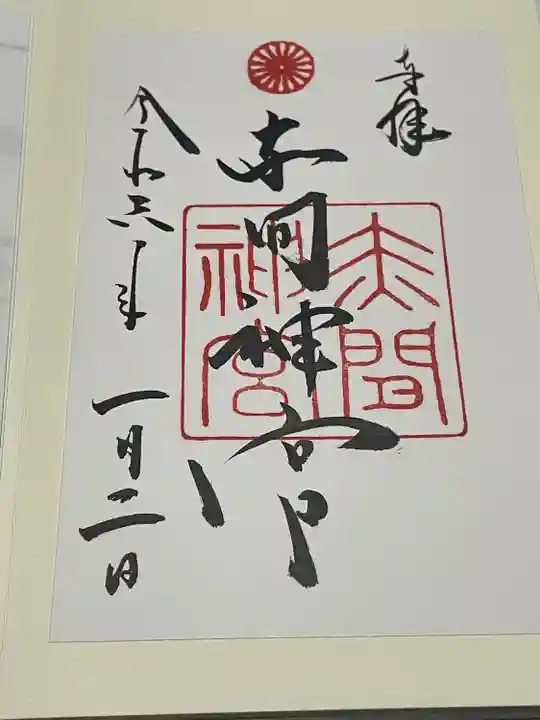 奉拝
赤間神宮
赤間
神宮
令和六年
一月二日